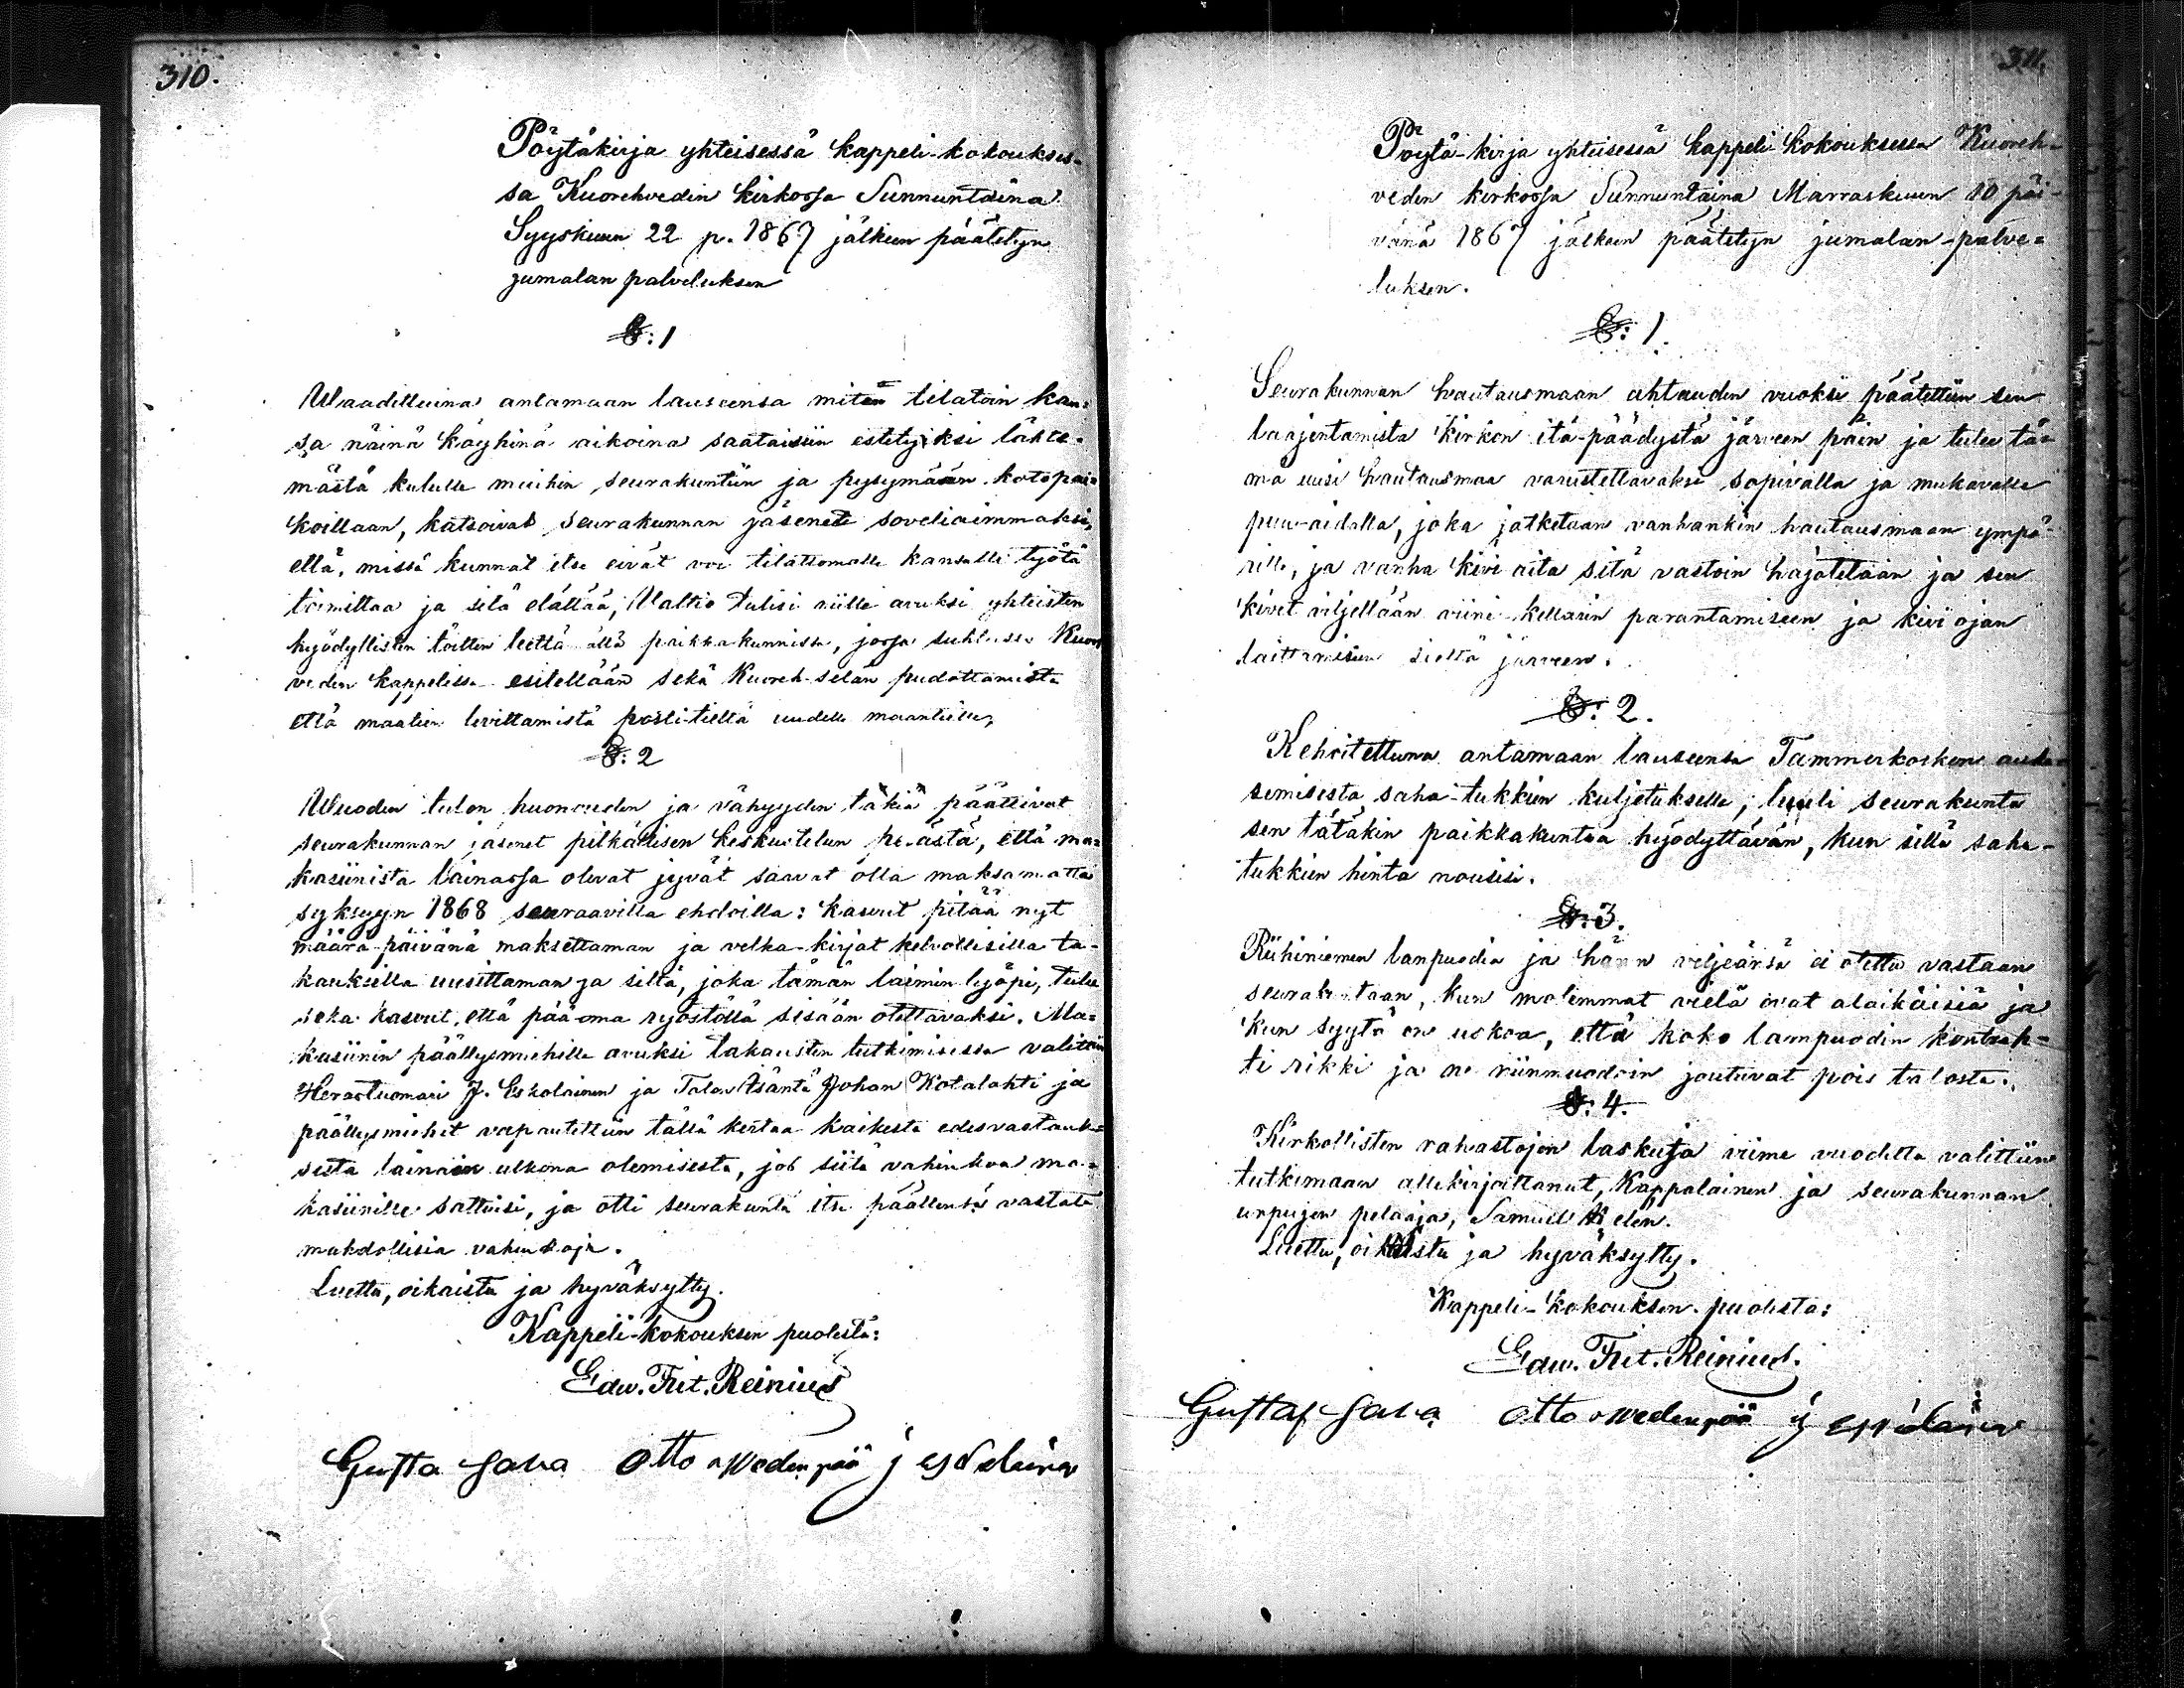 310.
Pöytäkirja yhteisessä kappeli-kokoukses-
sa Kuorehveden kirkossa Sunnuntaina
Syyskuun 22 p. 1867 jälkeen päätetyn
jumalan palveluksen
§: 1
Waadittuina antamaan lauseensa miten tilatoin kan-
sa näinä köyhinä aikoina saataisiin estetyiksi lähte-
mästä kululle muihin seurakuntiin ja pysymään kotopai-
koillaan, katsoivat seurakunnan jäsenet soveliaimmaksi,
että, missä kunnat itse eivät voi tilattomalle kansalle työtä
toimittaa ja sitä elättää, Waltio tulisi niille avuksi yhteisten
hyödyllisten töitten kettä ällä paikkakunnissa, jossa suhteessa Kuore
veden kappelissa esitellään sekä Kuoreh-selän pudottamista
että maatien levittamistä posti-tieltä uudelle maantielle,
§: 2
Wuoden tulon huonouden ja vähyyden täkiä päättivät
seurakunnan jäsenet pitkällisen keskustelun perästä, että ma-
kasiinista lainassa olevat jyvät saavat olla maksamatta
syksyyn 1868 seuraavilla ehdoilla: kasvut pitää nyt
määrä-päivänä maksettaman ja velka-kirjat kelvollisilla ta-
kauksilla uusittaman ja siltä, joka tämän laimin lyöpi, tulee
sekä kasvut, että pää-oma ryöstöllä sisään otettavaksi. Ma-
kasiinin päällysmiehille avuksi takausten tutkimisessa valittiin
Herastuomari J. Eskolainen ja Talon Isäntä Johan Kotalahti ja
päällysmiehet vapautettiin tällä kertaa kaikesta edesvastauk-
sesta lainain ulkona olemisesta, jos siitä vahinkoa ma-
kasiinille sattuisi, ja otti seurakunta itse päällensä vastata
mahdollisia vahinkoja.
Luettu, oikaistu ja hyväksytty.
Kappeli-kokouksen puolesta:
Edw. Frit. Reinius
Gusta Sava Otto Wedenpää j eskolainen
311.
Pöytä-kirja yhteisessä kappeli-kokouksessa Kuoreh-
veden kirkossa Sunnuntaina Marraskuun 10 päi-
vänä 1867 jälkeen päätetyn jumalan-palve-
luksen.
§: 1.
Seurakunnan hautausmaan ahtauden vuoksi päätettiin sen
laajentamista kirkon itä-päädystä järveen päin ja tulee tä-
mä uusi hautausmaa varustettavaksi sopivalla ja mukavalla
puu-aidalla, joka jatketaan vanhankin hautausmaan ympä-
rille, ja vanha kivi aita sitä vastoin hajotetaan ja sen
kivet viljellään viini-kellarin parantamiseen ja kivi ojan
laittamiseen sieltä järveen.
§: 2.
Kehoitettuna antamaan lauseensa Tammerkosken auka-
semisesta saha-tukkien kuljetukselle, luuli seurakunta
sen tätäkin paikkakuntaa hyödyttävän, kun sillä saha-
tukkien hinta nousisi.
§: 3.
Riihiniemen lanpuodia ja hänn veljeänsä ei otettu vastaan
seurakuntaan, kun molemmat vielä ovat alaikäisiä ja
kun syytä on uskoa, että koko lampuodin kontrah-
ti rikki ja ne niinmuodoin joutuvat pois talosta.
§: 4.
Kirkollisten rahastojen laskuja viime vuodelta valittiin
tutkimaan allekirjoittanut, Kappalainen ja seurakunnan
urpujen pelaaja, Samuel elen.
Luettu, oikaistu ja hyväksytty.
Kappeli-kokouksen puolesta:
Edw. Frit. Reinius.
Gustaf Sava Otto Wedenpää j eskolainen